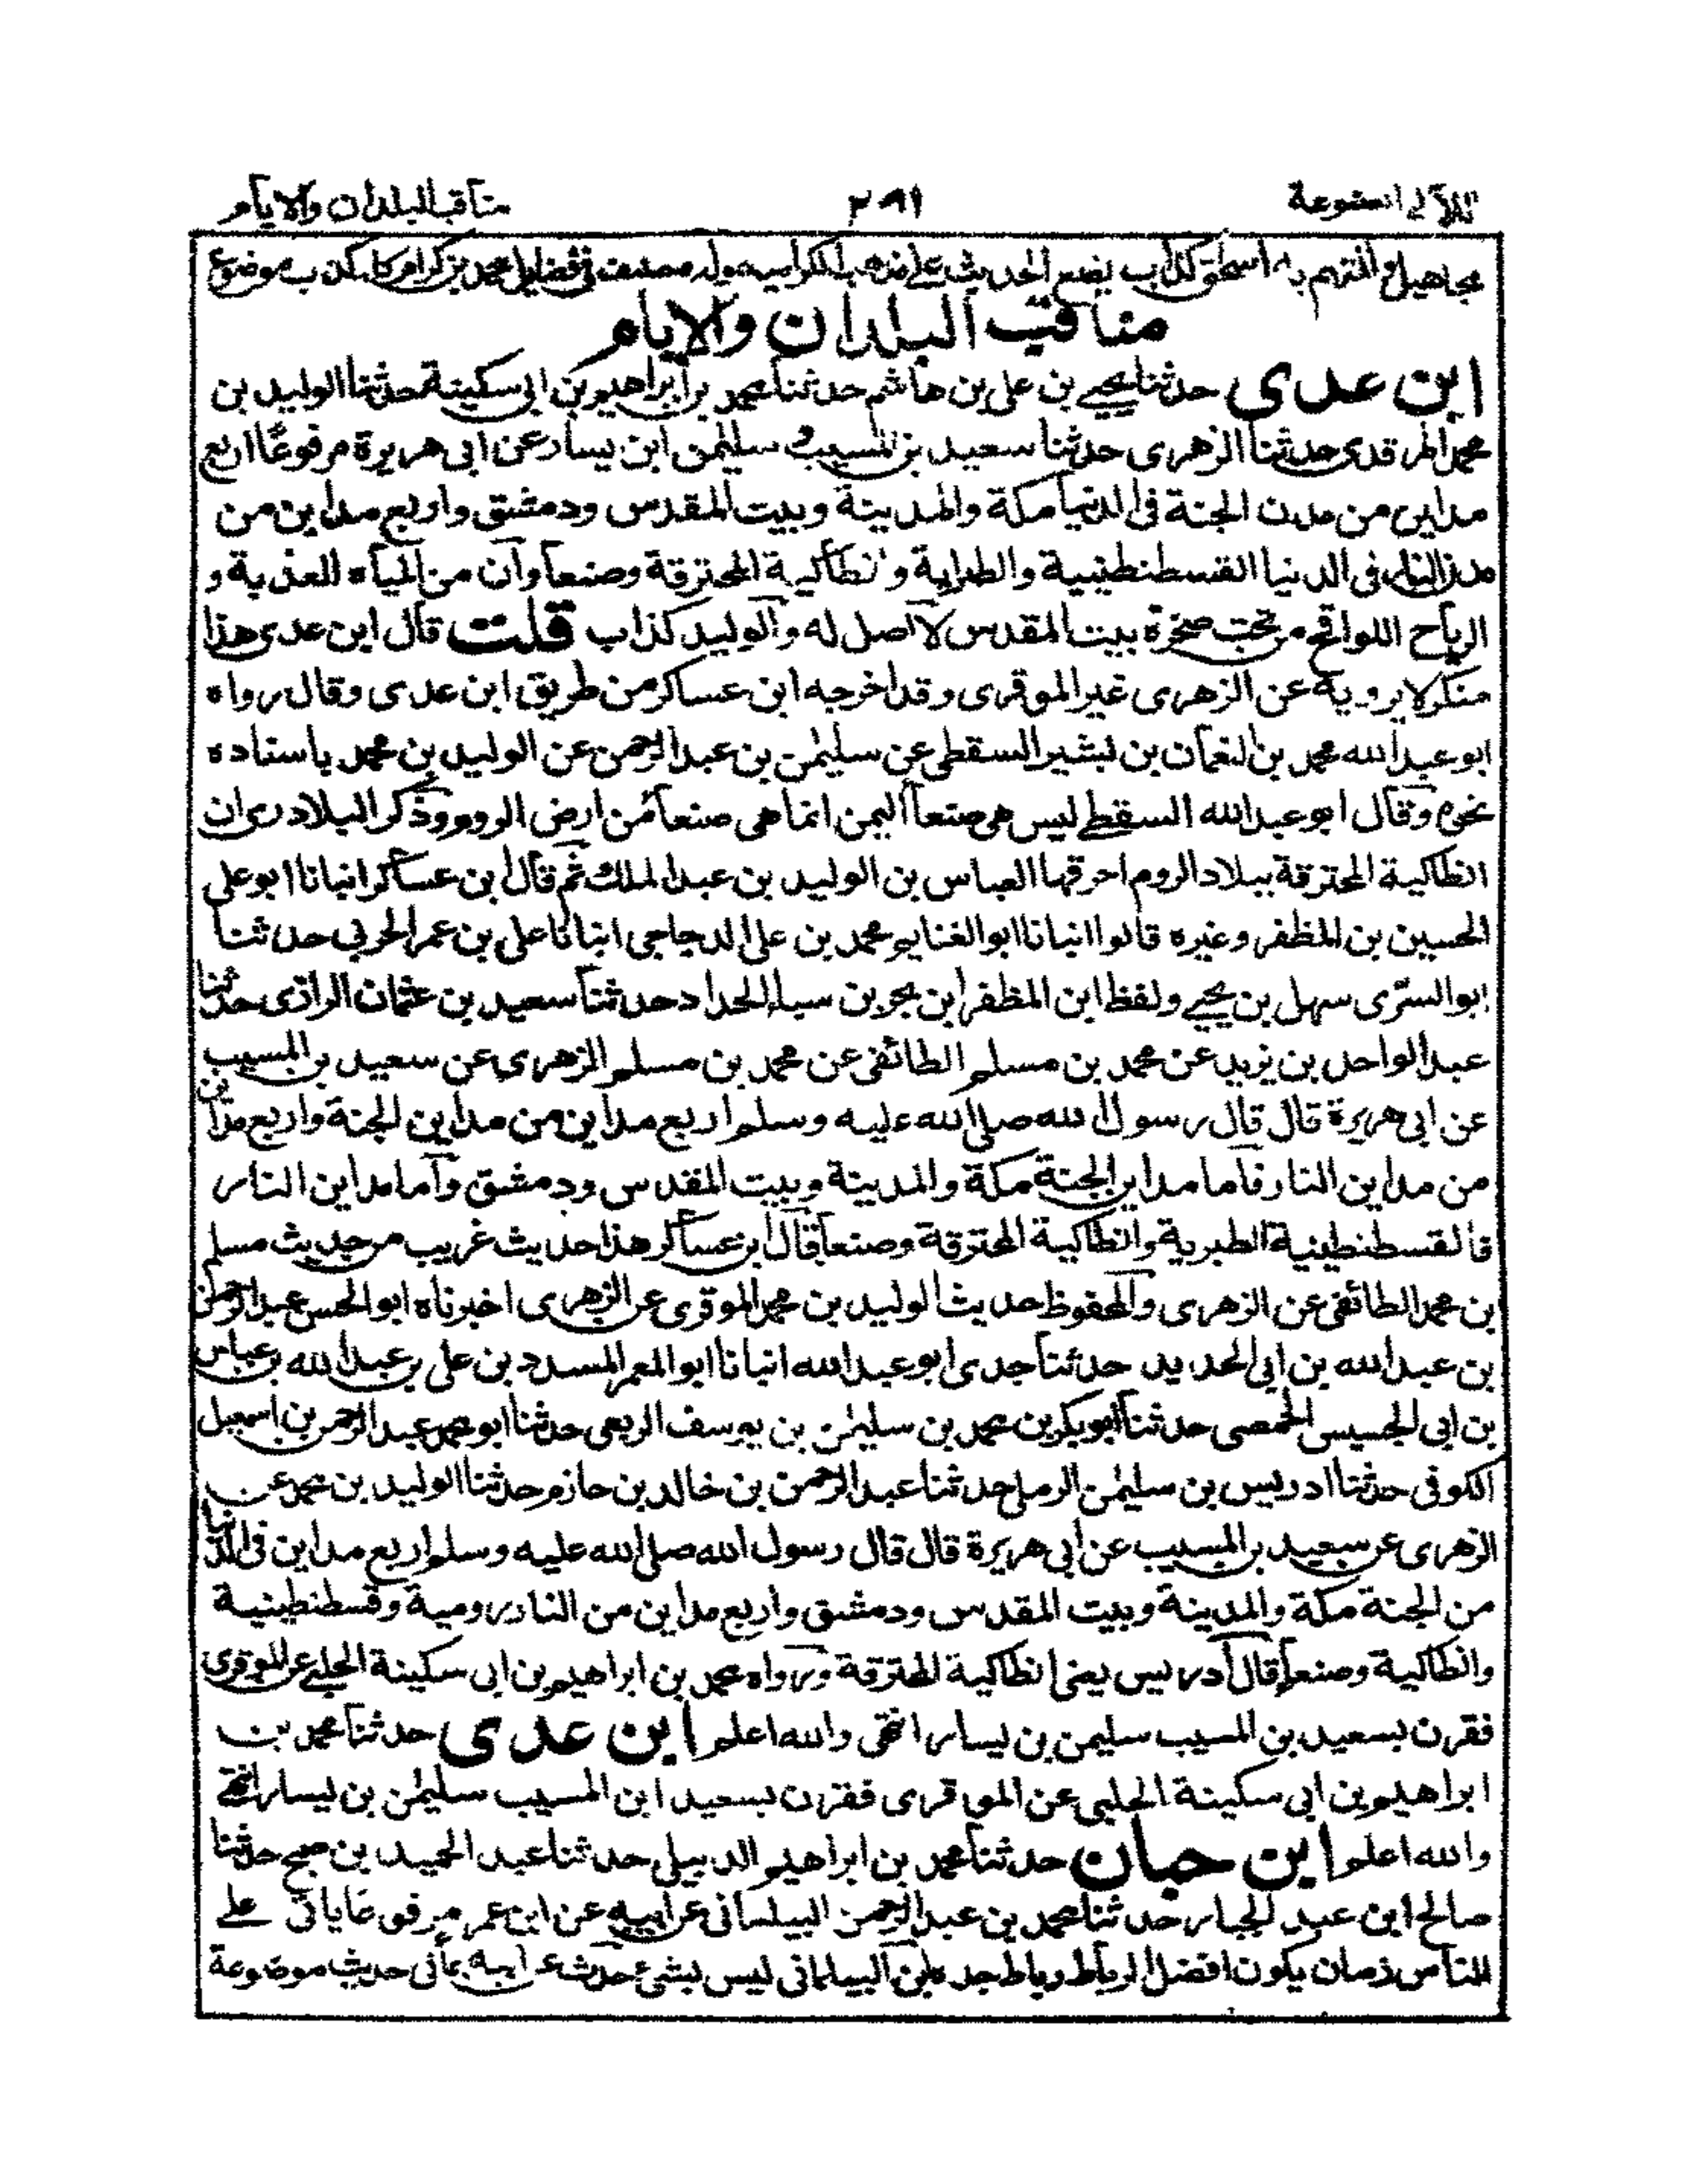 مناقب البلدان والايام
٢٩١
مجاهيل والمتهم به اسحق كذاب يضع الحديث على مذهب الكرامية وله مصنف في فضايل محمد بن كرام كله كذب موضوع
مناقب البلدان والايام
ابن عدى حدثنا يحيى بن على بن هاشم حدثنا محمد بن ابراهيم بن ابى سكينة حدثنا الوليد بن
محمد الموقرى حدثنا الزهرى حدثنا سعيد بن المسيب و سليمن ابن يسار عن ابى هريرة مرفوعًا اربع
مداين من مدن الجنة فى الدنيا مكة والمدينة وبيت المقدس ودمشق واربع مداين من
مدن النار فى الدنيا القسطنطينية والطبرية وانطاكية المحترقة وصنعاء وان من المياه العذبة و
الرياح اللواقح من تحت صخرة بيت المقدس لا اصل له والوليد كذاب قلت قال ابن عدى هذا
منكر لا يرويه عن الزهرى غير الموقرى وقد اخرجه ابن عساكر من طريق ابن عدى وقال رواه
ابو عبد الله محمد بن النعمان بن بشير السقطى عن سليمن بن عبد الرحمن عن الوليد بن محمد باسناده
نحوه وقال ابو عبد الله السقطى ليس هى صنعاء اليمن انما هى صنعاء من ارض الروم وذكر البلادرى ان
انطاكية المحترقة ببلاد الروم احرقها العباس بن الوليد بن عبد الملك ثم قال ابن عساكر انبانا ابو على
الحسين بن المظفر وغيره قالوا انبانا ابو الغنايم محمد بن على الدجاجى انبانا على بن عمر الحربى حدثنا
ابو السرى سهل بن يحيى ولفظ ابن المظفر ابن بحر بن سبا الحداد حدثنا سعيد بن عثمان الرازى حدثنا
عبد الواحد بن يزيد عن محمد بن مسلم الطائفى عن محمد بن مسلم الزهرى عن سعيد بن المسيب
عن ابى هريرة قال قال رسول الله صلى الله عليه وسلم اربع مداين من مداين الجنة واربع مداين
من مداين النار فاما مداين الجنة مكة والمدينة وبيت المقدس ودمشق واما مداين النار
فالقسطنطينية الطبرية وانطاكية المحترقة وصنعا قال ابن عساكر هذا حديث غريب من حديث مسلم
بن محمد الطائفى عن الزهرى والمحفوظ حديث الوليد بن محمد الموقرى عن الزهرى اخبرناه ابو الحسن عبد الرحمن
بن عبد الله بن ابى الحديد حدثنا جدى ابو عبد الله انبانا ابو المعمر المسدد بن على بن عبد الله بن عباس
بن ابى الجسيس الحمصى حدثنا ابو بكر بن محمد بن سليمن بن يوسف الربعى حدثنا ابو محمد عبد الرحمن بن اسمعيل
الكوفى حدثنا ادريس بن سليمن الرملى حدثنا عبد الرحمن بن خالد بن حازم حدثنا الوليد بن محمد عن
الزهرى عن سعيد بن المسيب عن ابى هريرة قال قال رسول الله صلى الله عليه وسلم اربع مداين فى الدنيا
من الجنة مكة والمدينة وبيت المقدس ودمشق واربع مداين من النار رومية وقسطنطينية
وانطاكية وصنعا قال ادريس يعنى انطاكية المحترقة ورواه محمد بن ابراهيم بن ابى سكينة الحلبى عن الموقرى
فقرن بسعيد بن المسيب سليمن بن يسار انتهى والله اعلم ابن عدى حدثنا محمد بن
ابراهيم بن ابى سكينة الحلبى عن الموقرى فقرن بسعيد ابن المسيب سليمن بن يسار انتهى
والله اعلم ابن حبان حدثنا محمد بن ابراهيم الدبيلى حدثنا عبد الحميد بن صبح حدثنا
صالح ابن عبد الجبار حدثنا محمد بن عبد الرحمن البيلسانى عن ابيه عن ابن عمر مرفوعا ياتى على
الناس زمان يكون افضل الرباط رباط جده ابن البيلمانى ليس بشئ حدث عن ابيه بمأتى حديث موضوعة